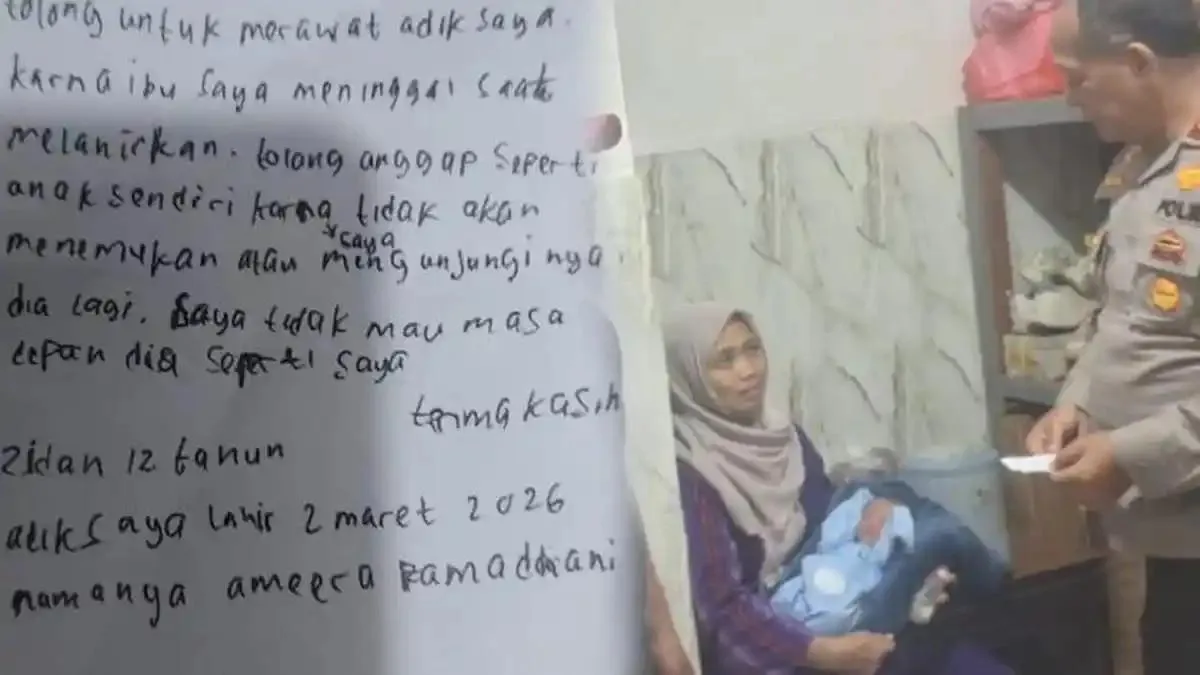 tolong untuk merawat adik saya.
karna ibu saya meninggal saat
melahirkan. tolong anggap seperti
anak sendiri karna tidak akan
saya
menemukan atau mengunjunginya
dia lagi. saya tidak mau masa
depan dia seperti saya
terima kasih
zidan 12 tahun
adik saya lahir 2 maret 2026
namanya ameera ramadhani